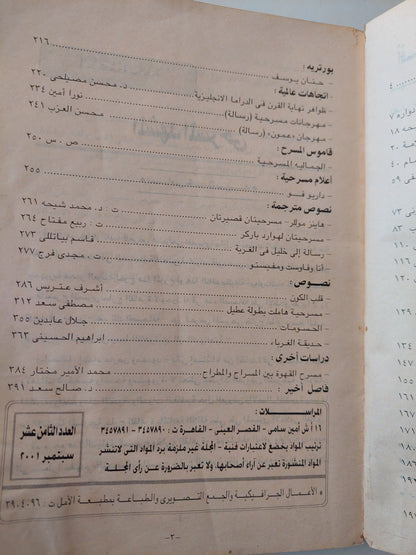 بورتريه :
- حنان يوسف ........ ٢١٦
اتجاهات عالمية :
- ظواهر نهاية القرن فى الدراما الانجليزية ........ د. محسن مصيلحى ٢٢٠
- مهرجانات مسرحية (رسالة) ........ نورا أمين ٢٣٤
- مهرجان «عمون» (رسالة) ........ محسن العزب ٢٤١
قاموس المسرح :
- الجماليه المسرحية ........ ص . س ٢٥٠
أعلام مسرحية :
- داريو فـو ........ ٢٥٥
نصوص مترجمة :
- هاينر موللر - مسرحيتان قصيرتان ........ ت : د. محمد شيحه ٢٦١
- مسرحيتان لهوارد باركر ........ ت : ربيع مفتاح ٢٦٤
- رسالة إلى خليل فى الغربة ........ قاسم بياتللى ٢٧٣
- أنا وفاوست ومفيستو ........ ت . مجدى فرج ٢٧٧
نصـوص :
- قلب الكون ........ أشرف عتريس ٢٨٦
- مسرحية هاملت بطولة عطيل ........ مصطفى سعد ٣١٢
- الحسومات ........ جلال عابدين ٣٥٥
- حديقة الغرباء ........ ابراهيم الحسينى ٣٦٣
دراسات أخرى :
- مسرح القهوة بين المسراج والمطراح ........ محمد الأمير مختار ٣٨٤
فاصل أخير ........ د. صالح سعد ٣٩١
المراسلات :
١٦ أ ش أمين سامى - القصر العينى - القاهرة ت : ٣٤٥٧٨٩٠ - ٣٤٥٧٨٩١
ترتيب المواد يخضع لاعتبارات فنية - المجلة غير ملزمة برد المواد التى لاتنشر
المواد المنشورة تعبر عن آراء أصحابها، ولا تعبر بالضرورة عن رأى المجلة
العدد الثامن عشر
سبتمبر ٢٠٠١
الأعمال الجرافيكية والجمع التصويرى والطباعة بمطبعة الأمل ت : ٣٩٠٤٠٩٦
-٢-